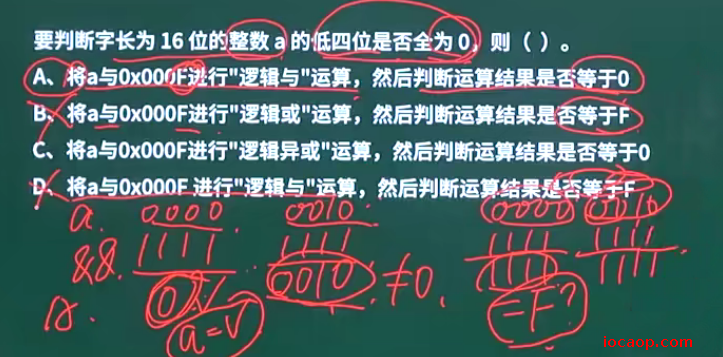 要判断字长为 16 位的整数 a 的低四位是否全为 0，则（ ）。
A、将a与0x000F进行"逻辑与"运算，然后判断运算结果是否等于0
B、将a与0x000F进行"逻辑或"运算，然后判断运算结果是否等于F
C、将a与0x000F进行"逻辑异或"运算，然后判断运算结果是否等于0
D、将a与0x000F 进行"逻辑与"运算，然后判断运算结果是否等于F
a. 0000 0010 0000 0010
&&. 1111 1111 1111 1111
0 0010 ≠0. 1111 1111
a=√ =F?
locaop.com